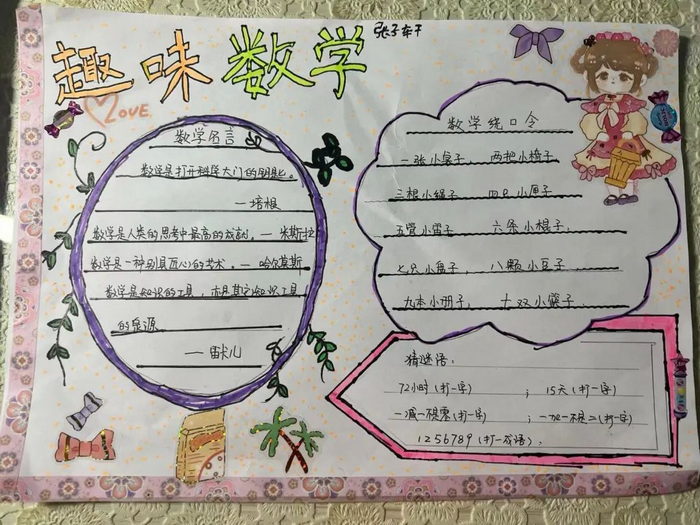 趣味数学
张子轩
LOVE.
数学名言
数学是打开科学大门的钥匙。
—培根
数学是人类的思考中最高的成就,—米斯拉
数学是一种别具匠心的艺术。—哈尔莫斯
数学是知识的工具,亦是其它知识工具
的泉源
—笛卡儿
数学绕口令
一张小桌子, 两把小椅子
三根小绳子 四只小匣子
五管小笛子 六条小棍子,
七只小盘子, 八颗小豆子
九本小册子, 十双小筷子.
猜谜语:
72小时(打一字) ; 15天(打一字)
一减一不是零(打一字) ; 一加一不是二(打一字)
1256789(打一成语);